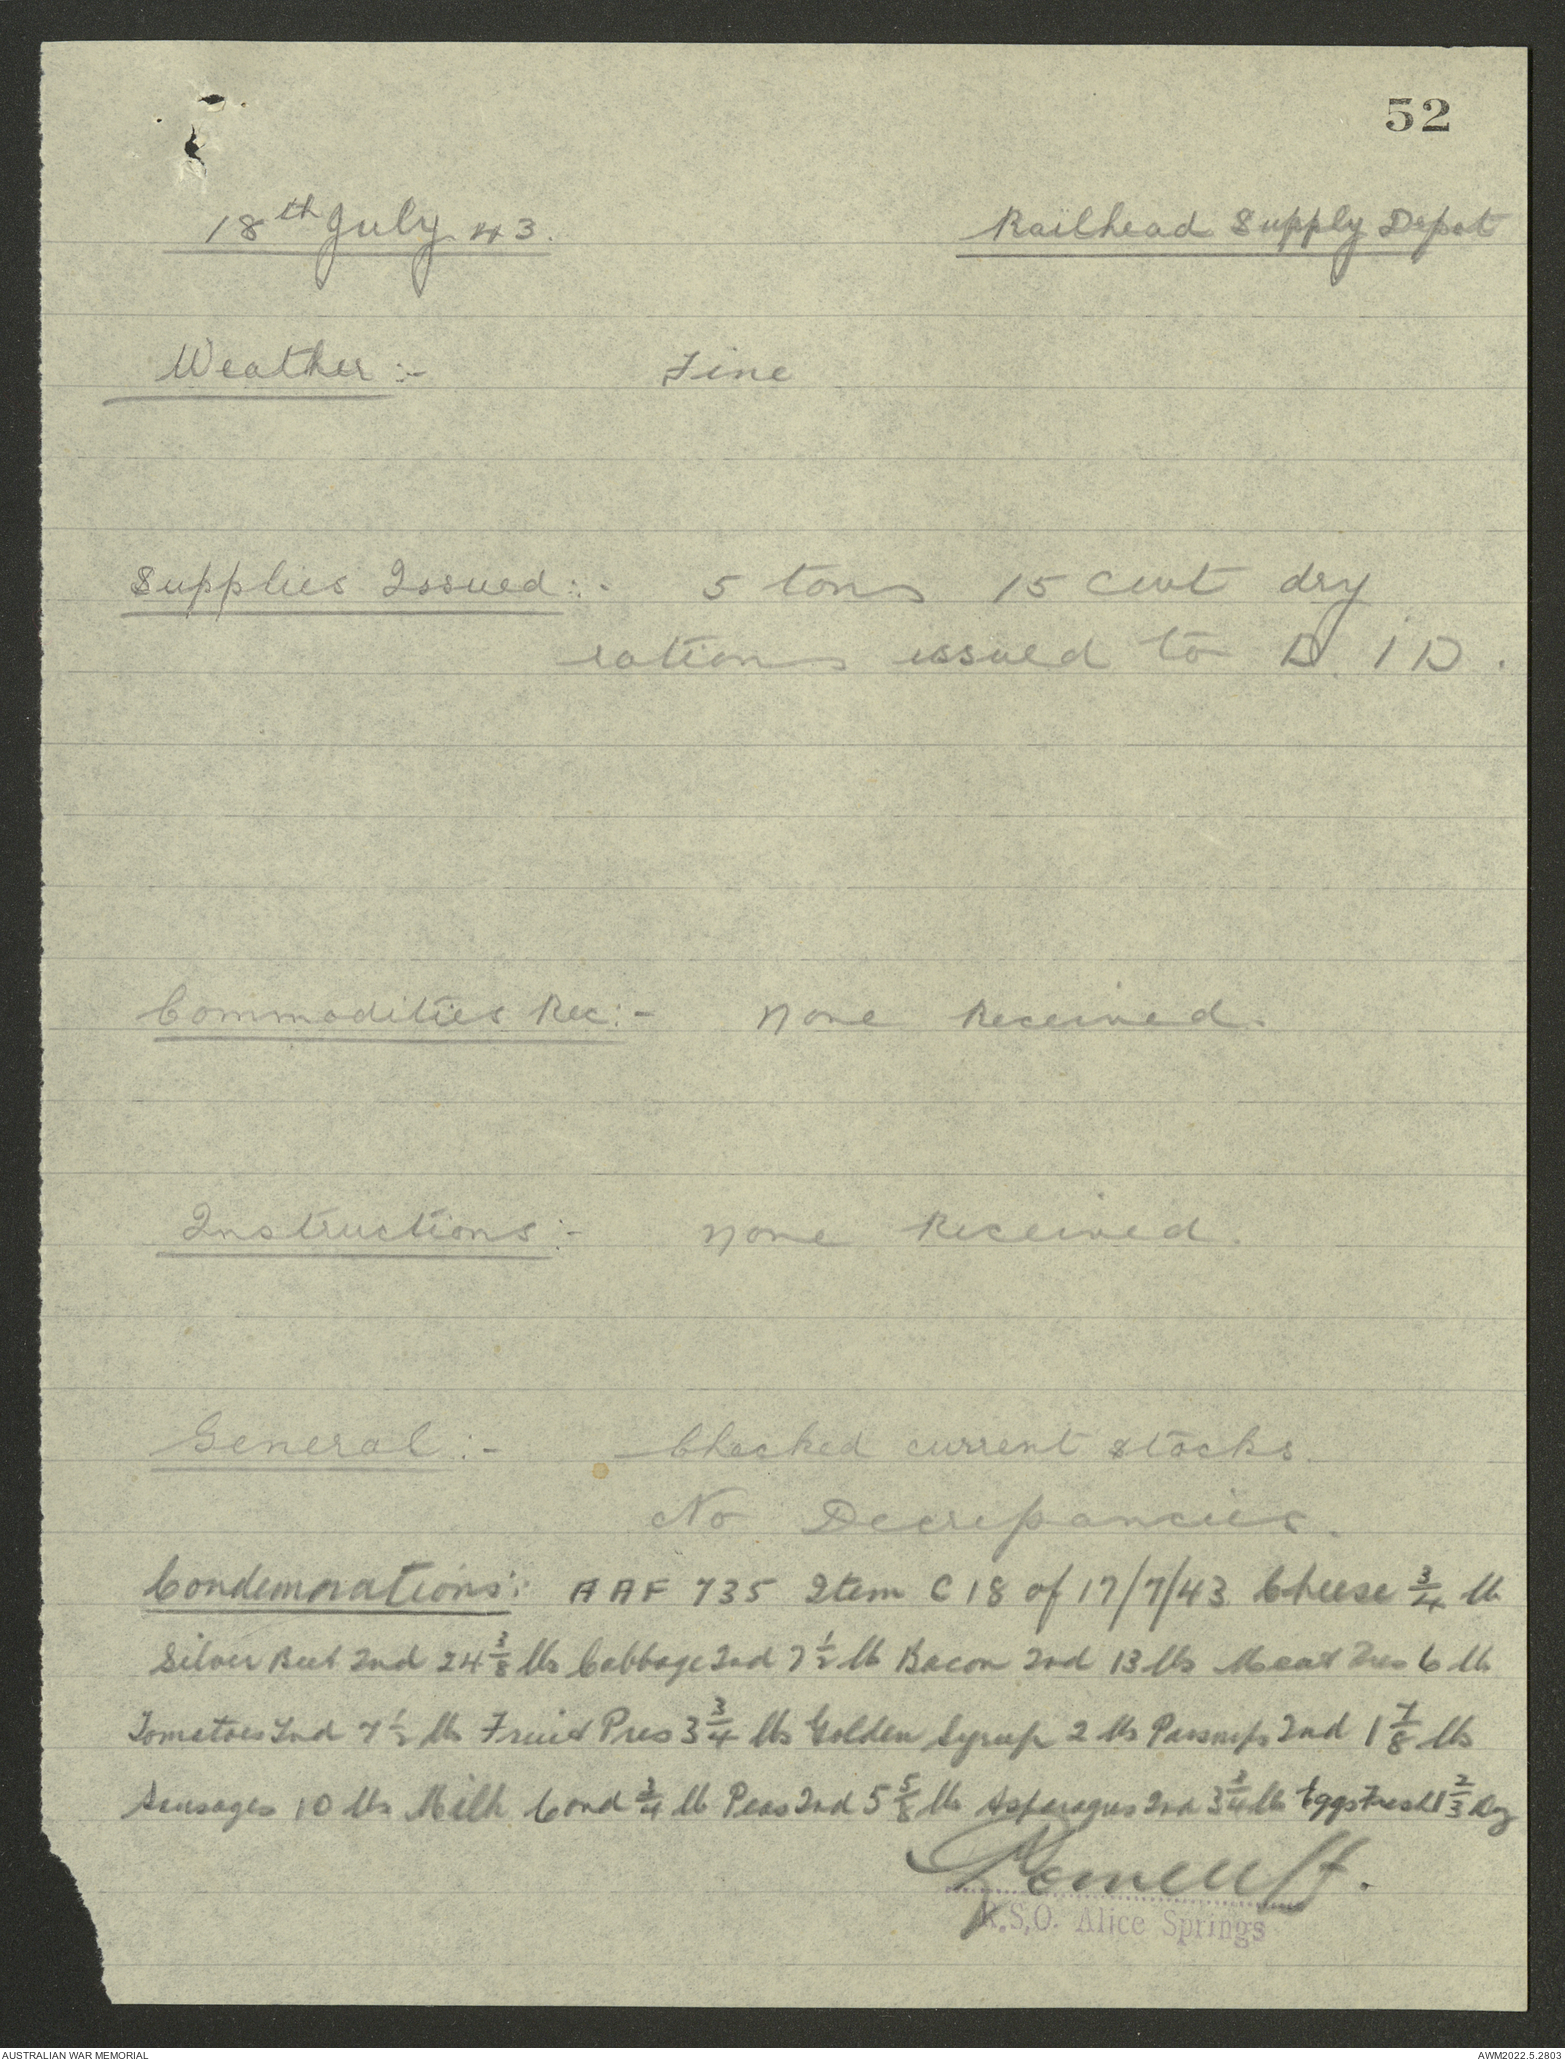 52
18th July 43.
Railhead Supply Depot
Weather:- Fine
Supplies Issued:- 5 tons 15 cwt dry
rations issued to D.I.D.
Commodities Rec:- None Received.
Instructions:- None Received.
General:- Checked current stocks.
No Decrepancies.
Condemnations: AAF 735 Item C18 of 17/7/43 Cheese 3/4 lb
Silver Beet 2nd 24 3/8 lbs Cabbage 2nd 7 1/2 lb Bacon 2nd 13 lbs Meat Pres 6 lb
Tomatoes 2nd 7 1/2 lb Fruit Pres 3 3/4 lbs Golden Syrup 2 lbs Parsnips 2nd 1 7/8 lbs
Sausages 10 lbs Milk Cond 3/4 lb Peas 2nd 5 5/8 lbs Asparagus 2nd 3 3/4 lb Eggs Fresh 1 2/3 Dz
R.S.O. Alice Springs
AUSTRALIAN WAR MEMORIAL
AWM2022.5.2803